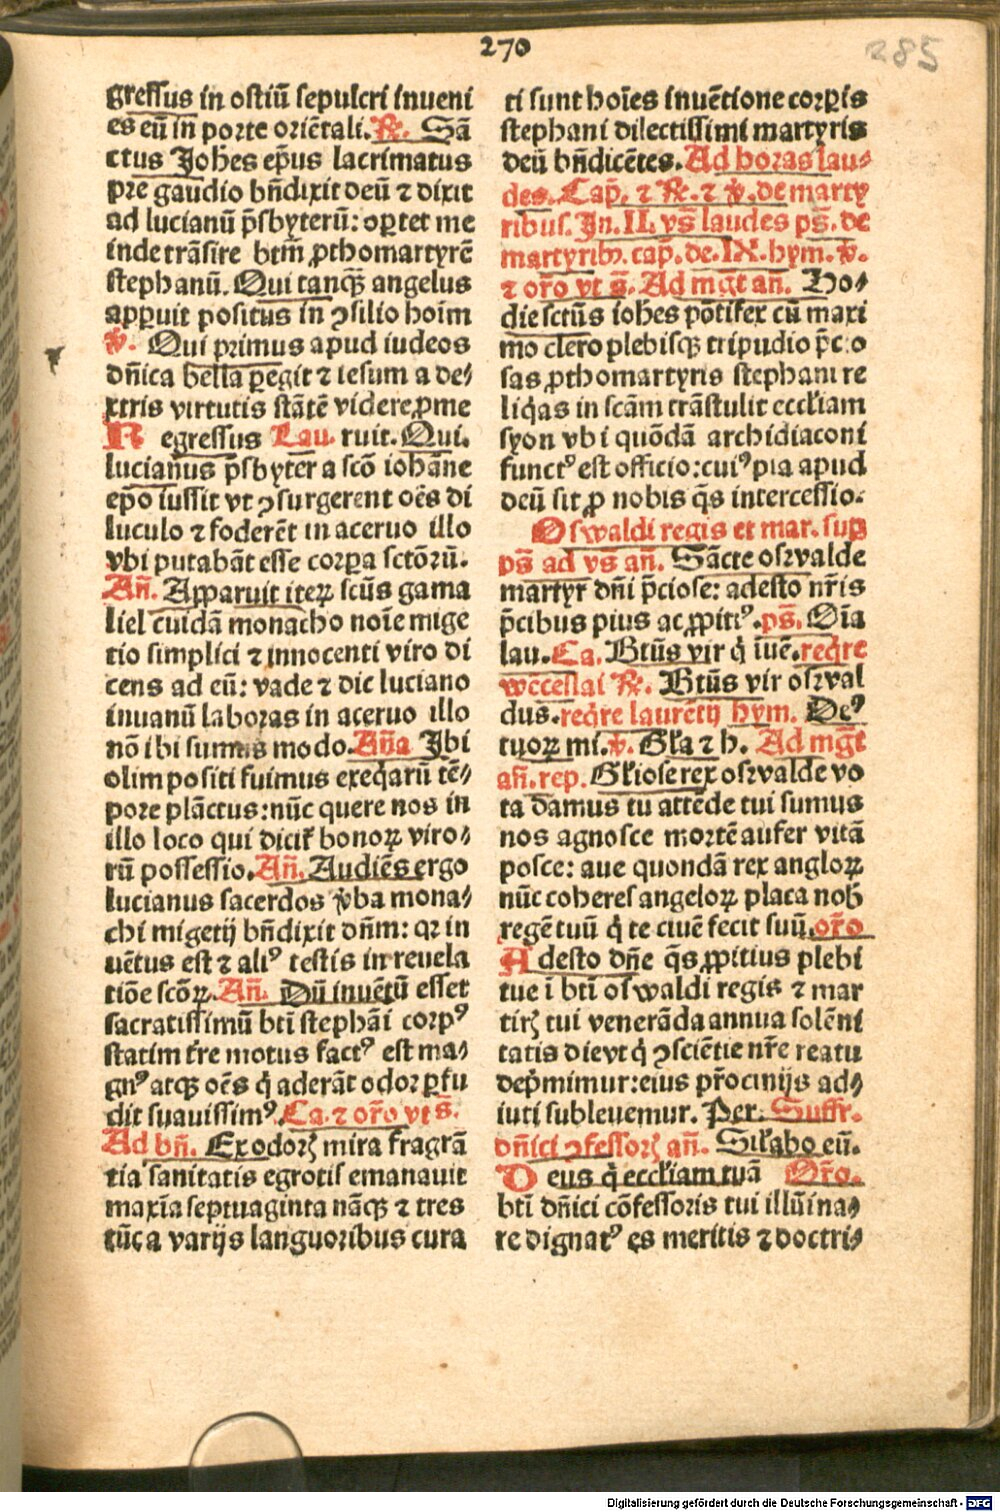 270
285
gressus in ostiū sepulcri inueni
es eū in porte oriētali. ℟. Sā
ctus Johēs ep̄us lacrimatus
pre gaudio bn̄dixit deū ⁊ dixit
ad lucianū p̄sbyterū: oꝑtet me
inde trāsire btm̄ ꝓthomartyrē
stephanū. Qui tanqꝫ angelus
apꝑuit positus in ꝯsilio hoīm
℣. Qui primus apud iudeos
dn̄ica bella ꝑegit ⁊ iesum a de⸗
xtris virtutis stātē videre ꝓme
Regressus Lau. ruit. Qui.
lucianus p̄sbyter a scō iohāne
ep̄o iussit vt ꝯsurgerent oēs di
luculo ⁊ foderēt in aceruo illo
vbi putabāt esse corꝑa sctōrū.
An̄. Apparuit iteꝝ scūs gama
liel cuidā monacho noīe mige
tio simplici ⁊ innocenti viro di
cens ad eū: vade ⁊ dic luciano
inuanū laboras in aceruo illo
nō ibi sumus modo. An̄a Ibi
olim positi fuimus exeq̄arū tē⸗
pore plāctus: nūc quere nos in
illo loco qui dicit̄ bonoꝝ viro⸗
rū possessio. An̄. Audiēs ergo
lucianus sacerdos v̄ba mona⸗
chi migetij bn̄dixit dn̄m: qꝛ in
uētus est ⁊ aliꝰ testis in reuela
tiōe scōꝝ. An̄. Dū inuētū esset
sacratissimū bti̅ stephāi corpꝰ
statim tr̄re motus factꝰ est ma⸗
gnꝰ atqꝫ oēs q̇ aderāt odor ꝑfu
dit suauissimꝰ. Ca. ⁊ or̄o vt s̄.
Ad bn̄. Ex odorꝭ mira fragrā
tia sanitatis egrotis emanauit
maxīa septuaginta nāqꝫ ⁊ tres
tūc a varijs languoribus cura
ti sunt hoīes inuētione corꝑis
stephani dilectissimi martyris
deū bn̄dicētes. Ad horas lau⸗
des. Cap̄. ⁊ ℟. ⁊ ℣. de marty
ribus. In. II. vs̄ laudes ps̄. de
martyribꝰ. cap̄. de. IX. hym. ℣.
⁊ or̄o vt s̄. Ad mgt̄ an̄. Ho⸗
die sctūs iohēs pōtifex cū maxi
mo clero plebisqꝫ tripudio p̄cio
sas ꝓthomartyris stephani re
liq̇as in scām trāstulit eccl̄iam
syon vbi quōdā archidiaconi
functꝰ est officio: cuiꝰ pia apud
deū sit ꝓ nobis q̄s intercessio.
Oswaldi regis et mar. sup
ps̄ ad vs̄ an̄. Sācte oswalde
martyr dn̄i p̄ciose: adesto nr̄is
p̄cibus pius ac ꝓpitiꝰ. ps̄. Oīa
lau. Ca. Btūs vir q̇ iuē. reqr̄e
wēceslai ℟. Btūs vir oswal
dus. reqr̄e laurētij hym. Deꝰ
tuoꝝ mi. ℣. Gl̄a ⁊ h. Ad mgt̄
an̄. rep. Gl̄iose rex oswalde vo
ta damus tu attēde tui sumus
nos agnosce mortē aufer vitā
posce: aue quondā rex angloꝝ
nūc coheres angeloꝝ placa nob̄
regē tuū q̇ te ciuē fecit suū. or̄o
Adesto dn̄e q̄s ꝓpitius plebi
tue ī bti̅ oswaldi regis ⁊ mar
tirꝭ tui venerāda annua solēni
tatis die vt q̇ ꝯsciētie nr̄e reatu
dep̄mimur: eius pr̄ocinijs ad⸗
iuti subleuemur. Per. Suffr.
dn̄ici ꝯfessorꝭ an̄. Sil̄abo eū.
Deus q̇ eccl̄iam tuā Or̄o.
bti̅ dn̄ici cōfessoris tui illūina⸗
re dignatꝰ es meritis ⁊ doctri⸗
Digitalisierung gefördert durch die Deutsche Forschungsgemeinschaft - DFG